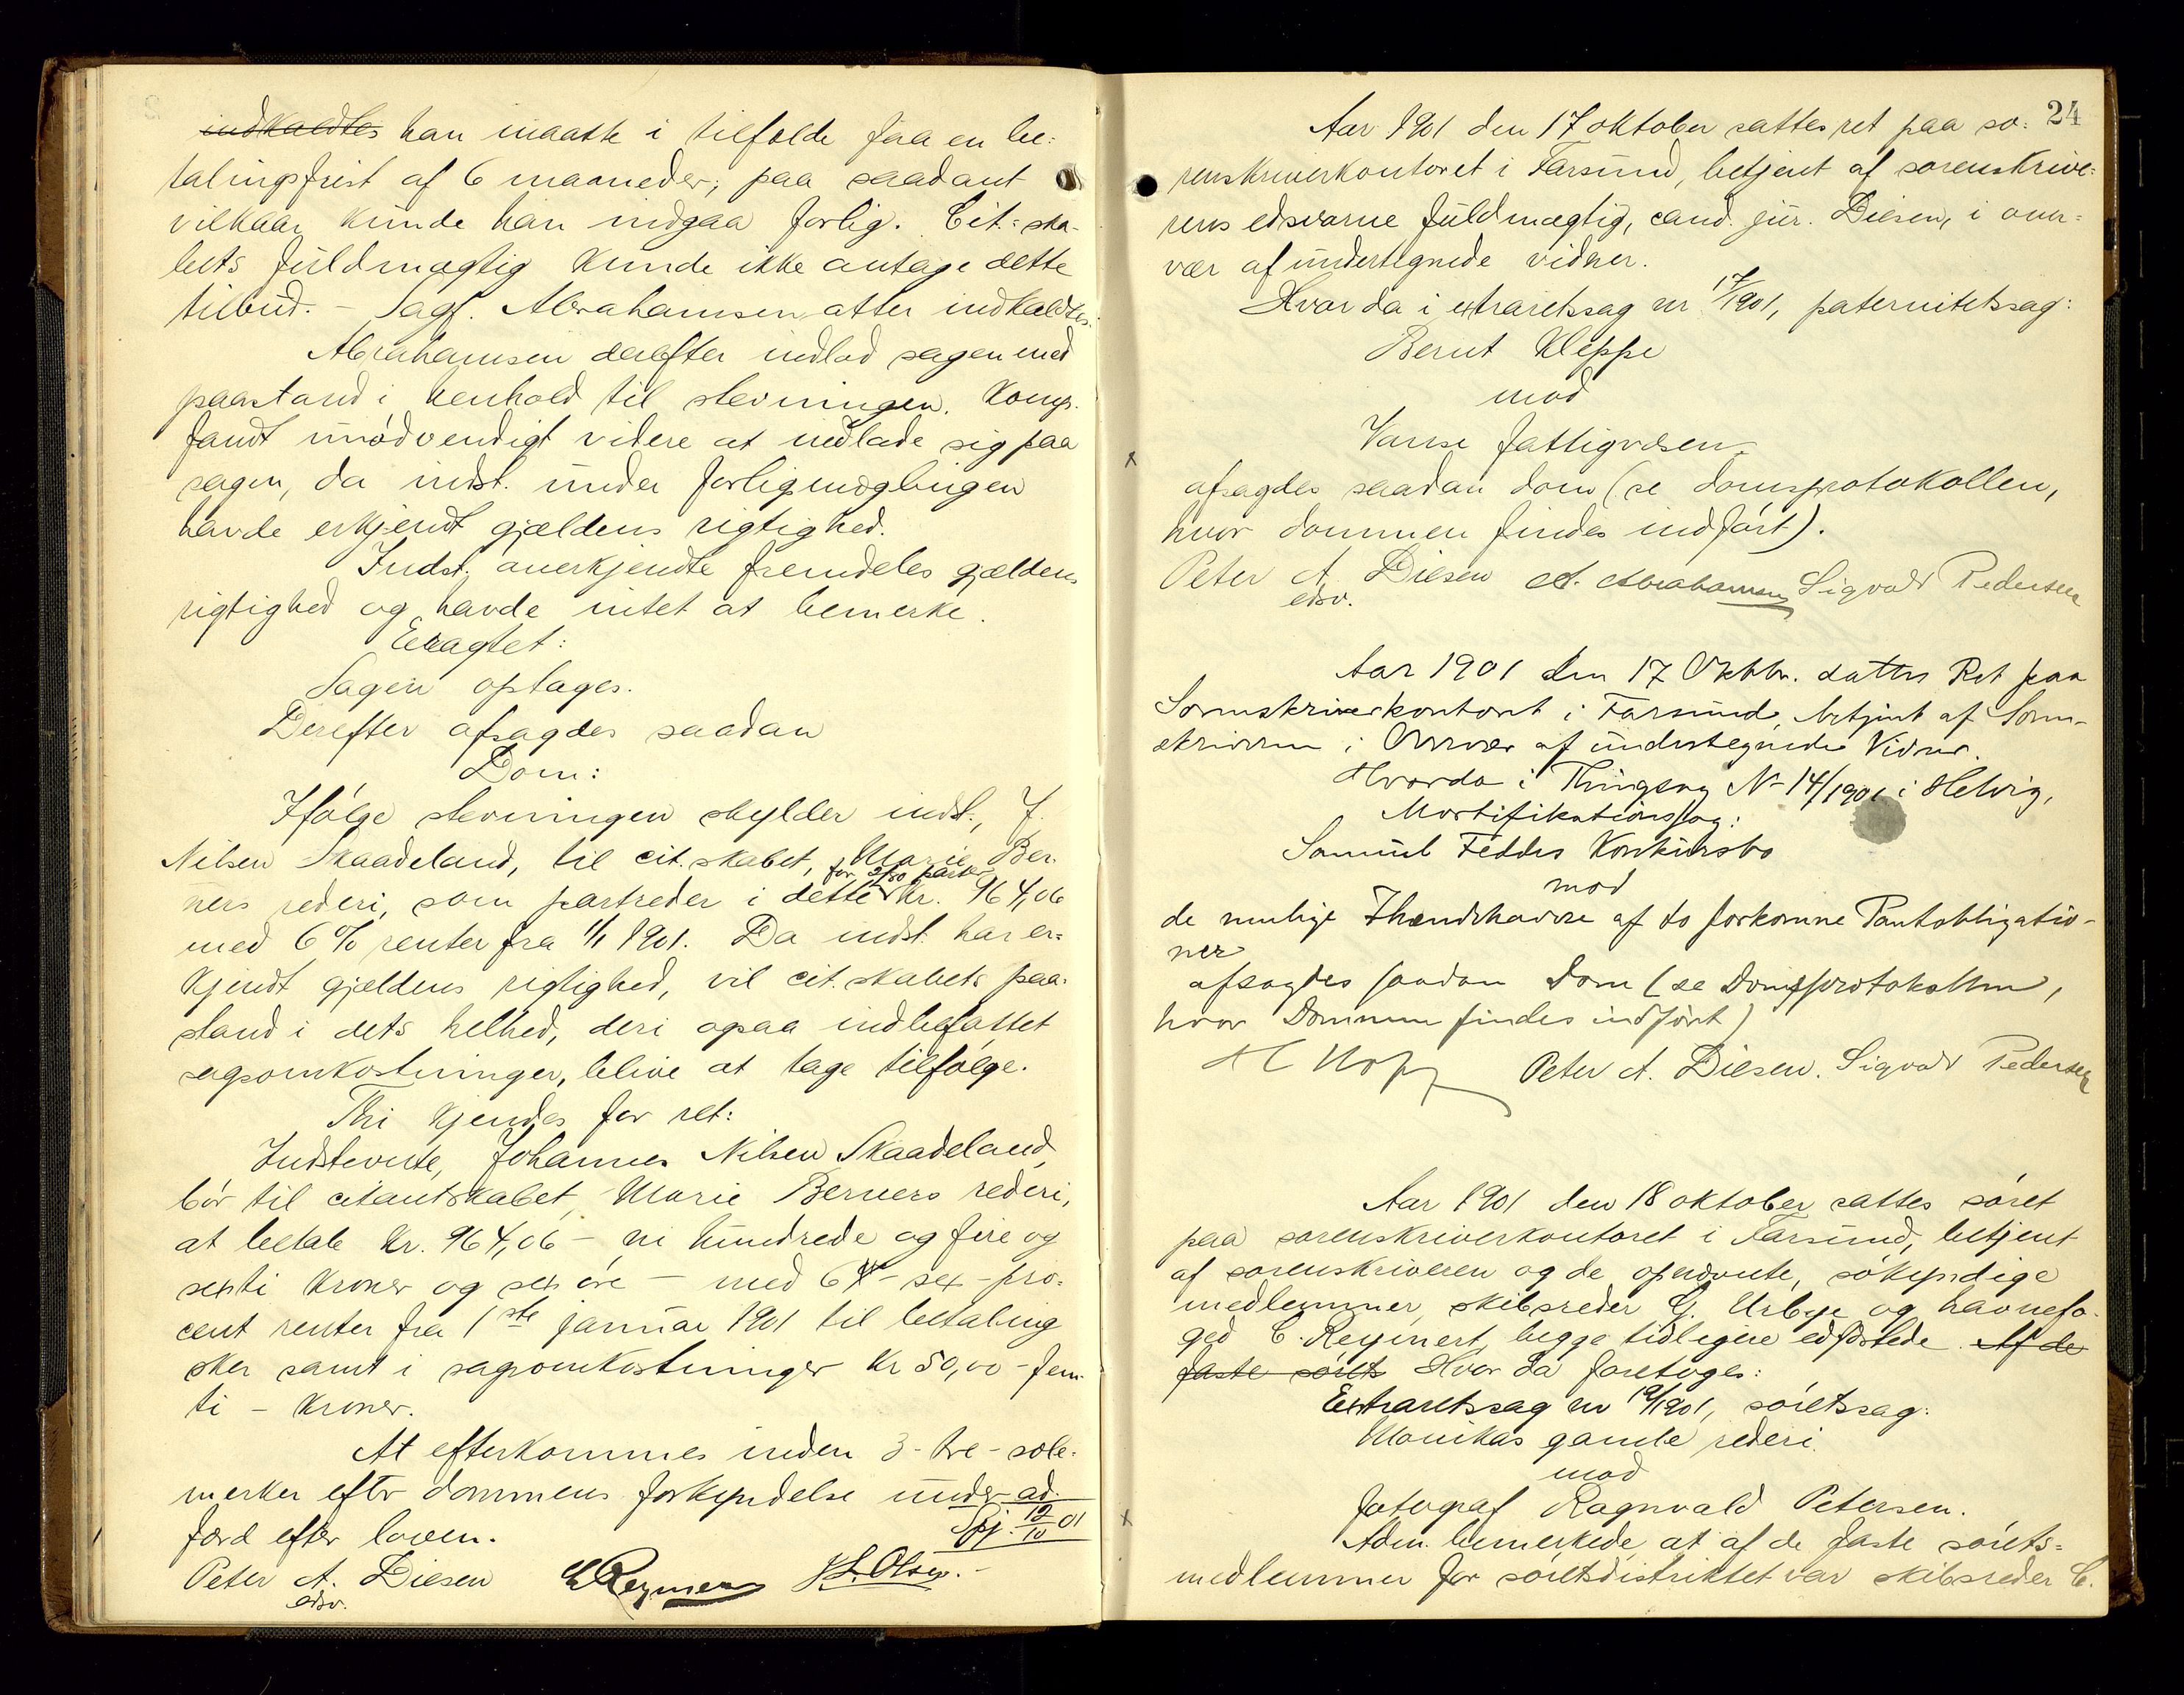 indkaldtes han maatte i tilfælde faa en be-
talingsfrist af 6 maaneder; paa saadant
vilkaar kunde han indgaa forlig. Cit.ska-
bets fuldmægtig kunde ikke antage dette
tilbud. – Sagf. Abrahamsen atter indkaldtes.
Abrahamsen derefter indlod sagen med
paastand i henhold til stevningen. Komp.
fandt unødvendigt videre at indlade sig paa
sagen, da indst. under forligsmæglingen
havde erkjendt gjældens rigtighed.
Indst. anerkjendte fremdeles gjældens
rigtighed og havde intet at bemerke.
Eragtet:
Sagen optages.
Derefter afsagdes saadan
Dom:
Ifølge stevningen skylder indst., J.
Nilsen Skaadeland, til cit.skabet, Marie Ber-
for 2/80 parter
ners rederi, som partreder i dette kr. 964,06
med 6 % renter fra 1/1 1901. Da indst. har er-
kjendt gjældens rigtighed, vil cit.skabets paa-
stand i dets helhed, deri ogsaa indbefattet
sagsomkostninger, blive at tage tilfølge.
Thi kjendes for ret:
Indstevnte, Johannes Nilsen Skaadeland,
bør til citantskabet, Marie Berners rederi,
at betale kr. 964,06 – ni hundrede og fire og
sexti kroner og sex øre – med 6 – sex – pro-
cent renter fra 1ste januar 1901 til betaling
sker samt i sagsomkostninger kr 50,00 – fem-
ti – kroner.
At efterkommes inden 3 – tre – sole-
merker efter dommens forkyndelse under ad-
færd efter loven.
12/10 01
Peter A. Diesen
edsv.
C Reymert H. L. Olsen.
24
Aar 1901 den 17 oktober sattes ret paa so-
renskriverkontoret i Farsund, betjent af sorenskrive-
rens edsvorne fuldmægtig, cand. jur. Diesen, i over-
vær af undertegnede vidner.
Hvor da i extraretssag nr 17/1901, paternitetssag:
Bernt Kleppe
mod
Vanse fattigvæsen
afsagdes saadan dom (se domsprotokollen,
hvor dommen findes indført).
Peter A. Diesen A. Abrahamsen Sigvald Pedersen
edsv.
Aar 1901 den 17 Oktbr. sattes Ret paa
Sorenskriverkontoret i Farsund, betjent af Soren-
skriveren i Overvær af undertegnede Vidner.
Hvorda i Thingsag No 14/1901 i Helvig,
Mortifikationssag:
Samuel Feddes Konkursbo
mod
de mulige Ihændehavere af to forkomne Pantobligatio-
ner
afsagdes saadan Dom (se Domsprotokollen,
hvor Dommen findes indført)
Peter A. Diesen. Sigvald Pedersen
Aar 1901 den 18 oktober sattes søret
paa sorenskriverkontoret i Farsund, betjent
af sorenskriveren og de opnævnte, søkyndige
medlemmer, skibsreder G. Urbye og havnefo-
ged C. Reymert, begge tidligere edfæstede. Af de
faste sørets Hvor da foretoges:
Extraretssag nr 19/1901, søretssag:
Monikas gamle rederi
mod
fotograf Ragnvald Petersen.
Adm. bemerkede, at af de faste sørets-
medlemmer for søretsdistriktet var skibsreder C.